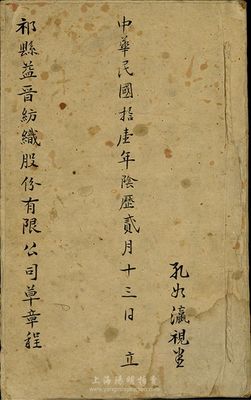 孔如瀛視書
中華民國拾壹年陰歷貳月十三日 立
祁縣益晉紡織股份有限公司草章程
上海陽明拍賣